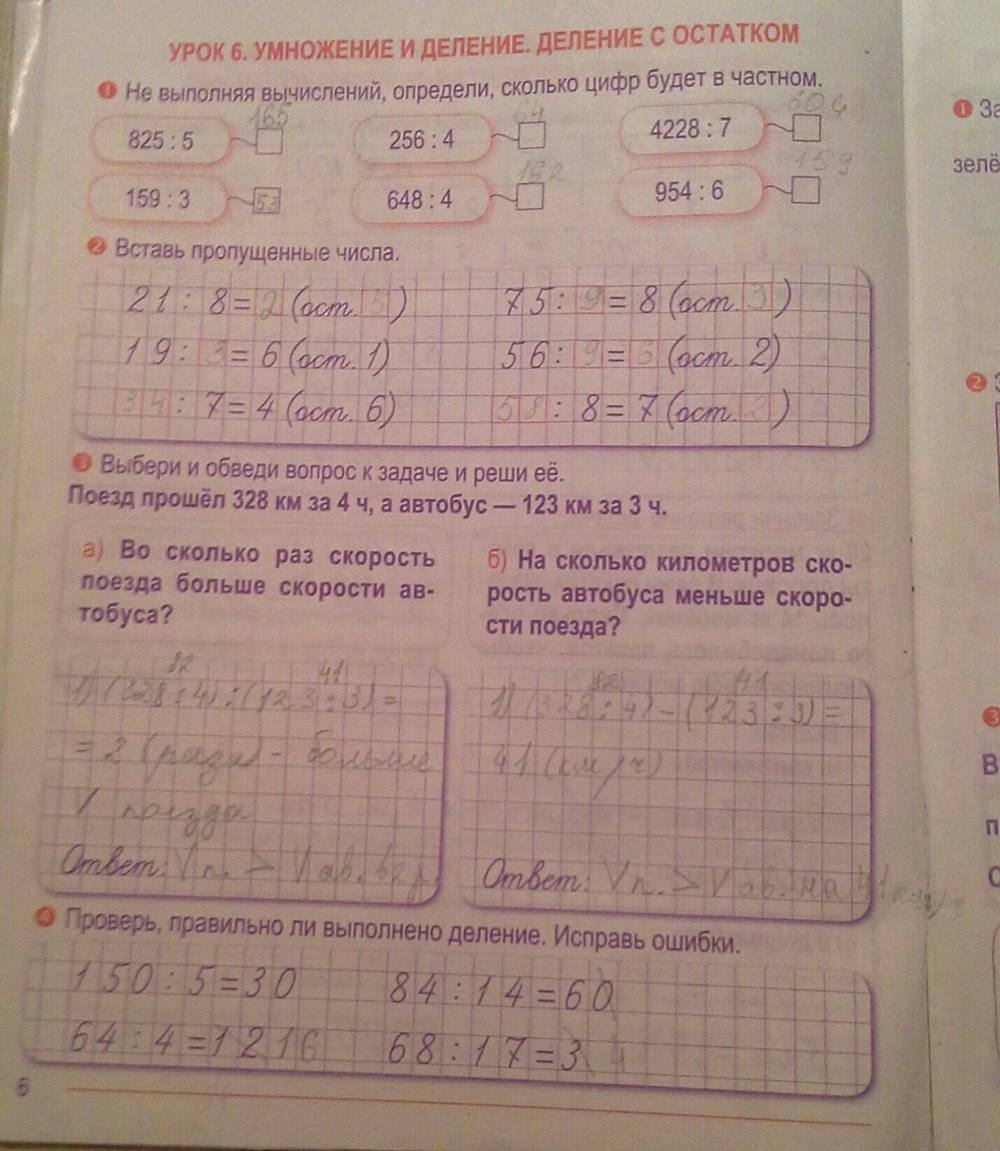 УРОК 6. УМНОЖЕНИЕ И ДЕЛЕНИЕ. ДЕЛЕНИЕ С ОСТАТКОМ
1 Не выполняя вычислений, определи, сколько цифр будет в частном.
825 : 5 165 256 : 4 64 4228 : 7 604
159 : 3 53 648 : 4 162 954 : 6 159
2 Вставь пропущенные числа.
21 : 8 = 2 (ост. 5) 75 : 9 = 8 (ост. 3)
19 : 3 = 6 (ост. 1) 56 : 9 = 6 (ост. 2)
34 : 7 = 4 (ост. 6) 58 : 8 = 7 (ост. 2)
3 Выбери и обведи вопрос к задаче и реши её.
Поезд прошёл 328 км за 4 ч, а автобус — 123 км за 3 ч.
а) Во сколько раз скорость
поезда больше скорости ав-
тобуса?
б) На сколько километров ско-
рость автобуса меньше скоро-
сти поезда?
82 41
1) (328 : 4) : (123 : 3) =
= 2 (раза) - больше
V поезда
Ответ: Vп. > Vав. в 2 р.
82 41
1) (328 : 4) - (123 : 3) =
41 (км/ч)
Ответ: Vп. > Vав. на 41 км/ч
4 Проверь, правильно ли выполнено деление. Исправь ошибки.
150 : 5 = 30 84 : 14 = 60
64 : 4 = 12 16 68 : 17 = 3 4
6
1 За
зелё
2 З
3
В
п
С